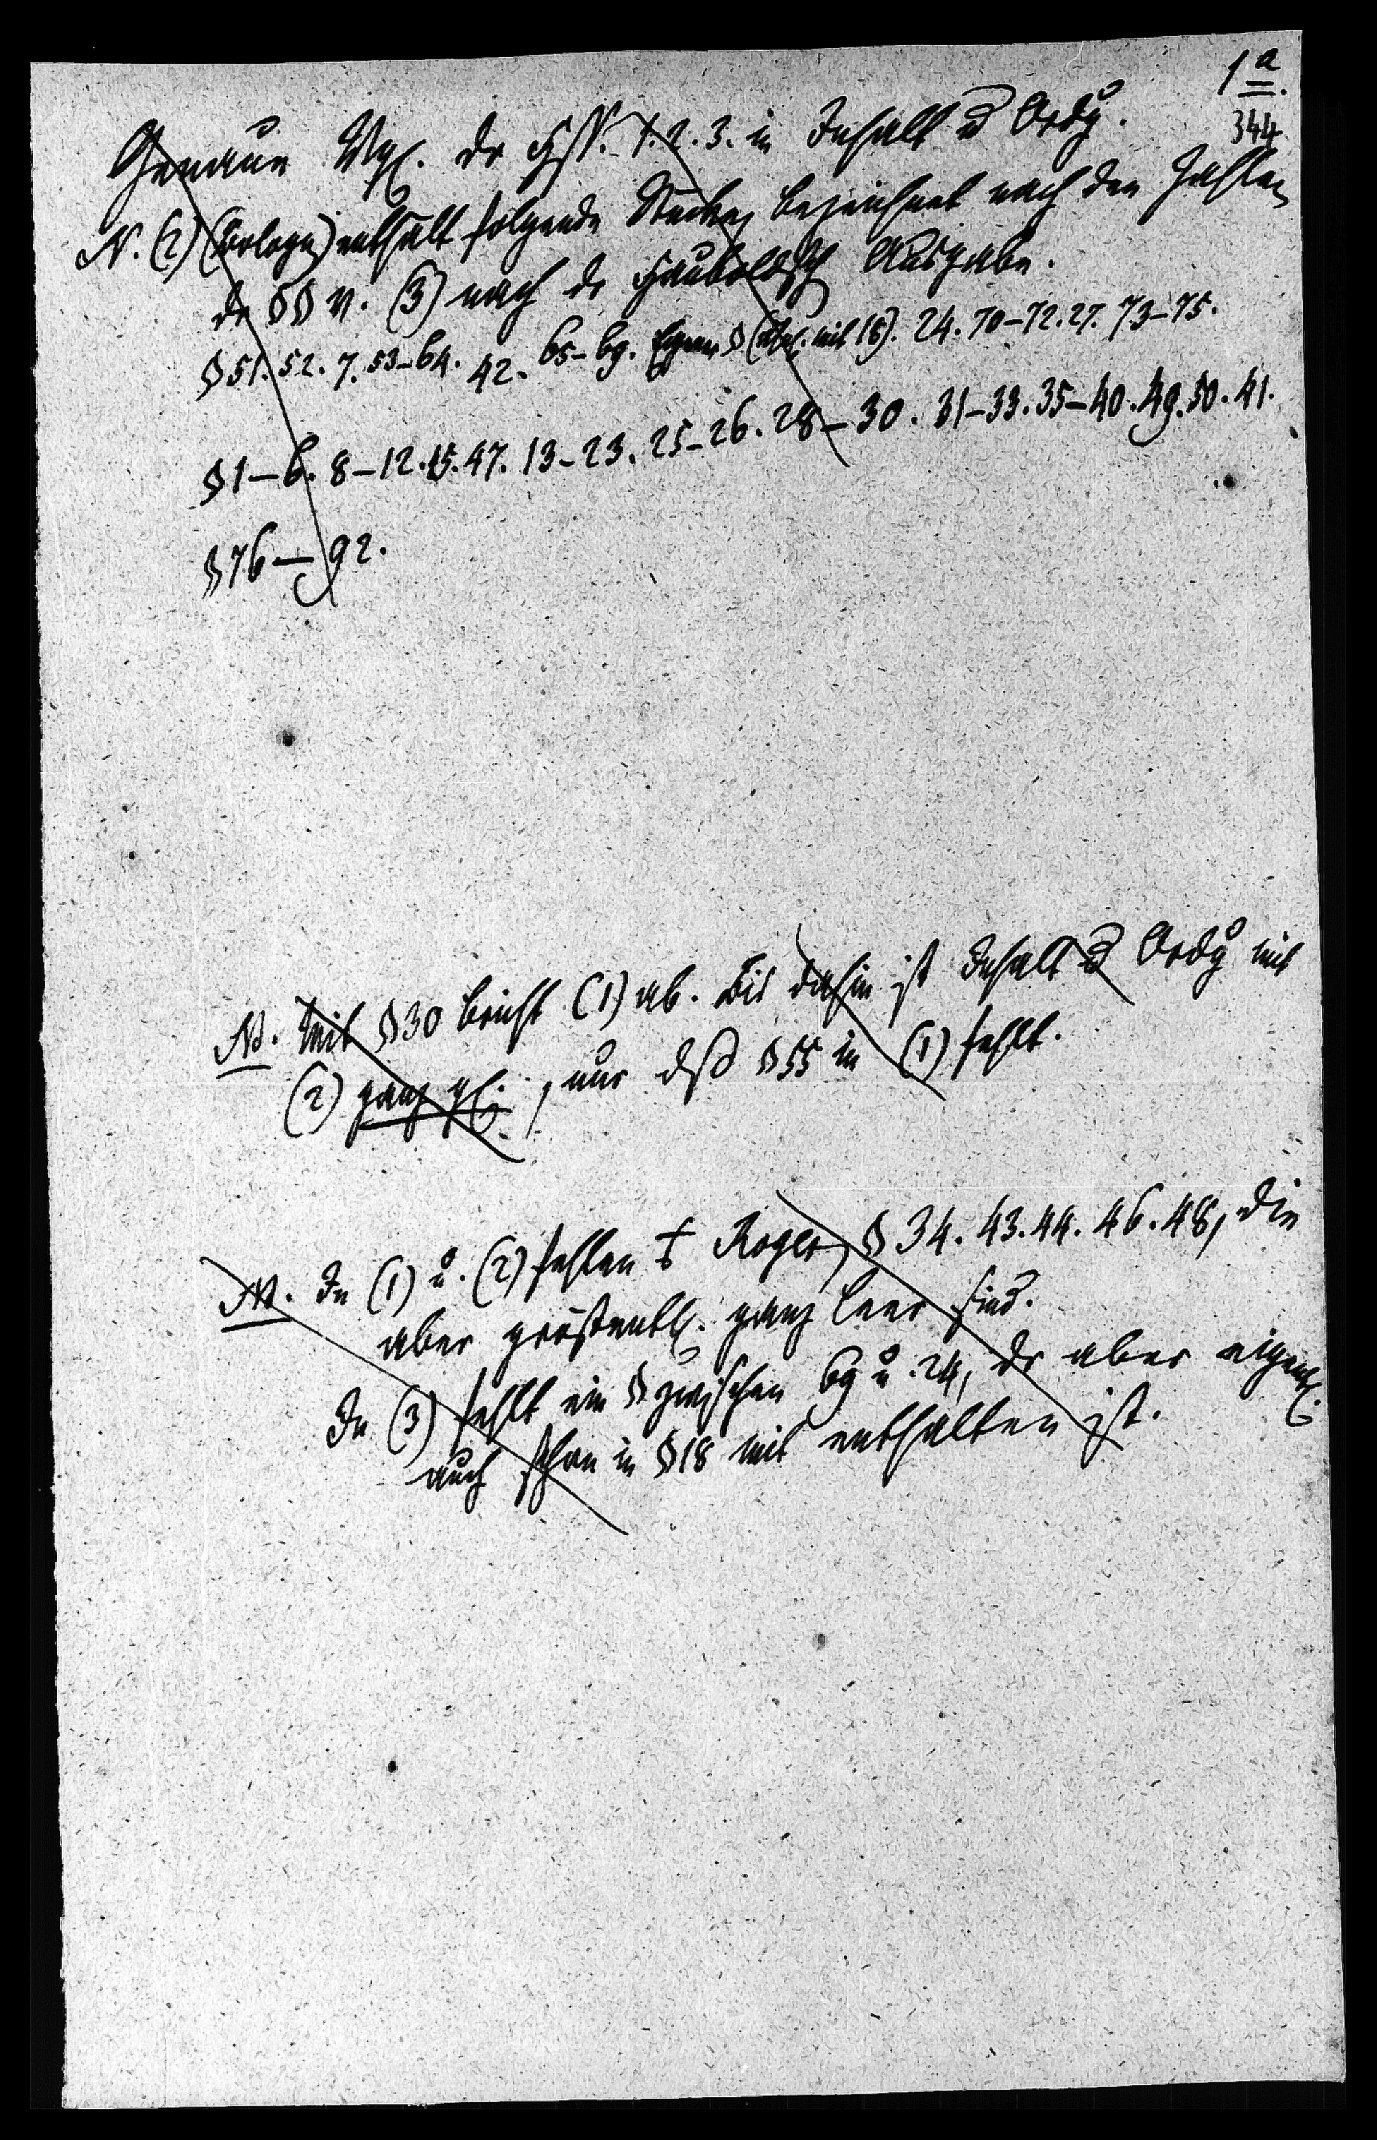 1a.
344
Genaue Vgl. der HSS. 1. 2. 3. in Inhalt u Ordg.
N. (2) (Bologn) enthält folgende Stücke, bezeichnet nach den Zahlen
der §§ v. (3) nach der Hauboldsch Ausgabe.
§ 51. 52. 7. 53–64. 42. 65–69. Eigener § (Vgl. mit 18). 24. 70–72. 27. 73–75.
§ 1–6. 8–12. 45. 47. 13–23. 25–26. 28–30. 31–33. 35–40. 49. 50. 41.
§ 76–92.
NB. Mit § 30 bricht (1) ab. Bis dahin ist Inhalt u Ordg mit
(2) ganz gl., nur dß § 55 in (1) fehlt.
NB. In (1) u. (2) fehlen Roger § 34. 43. 44. 46. 48, die
aber größentl. ganz leer sind.
In (3) fehlt ein § zwischen 69 u. 24, der aber eigentl.
auch schon in § 18 mit enthalten ist.